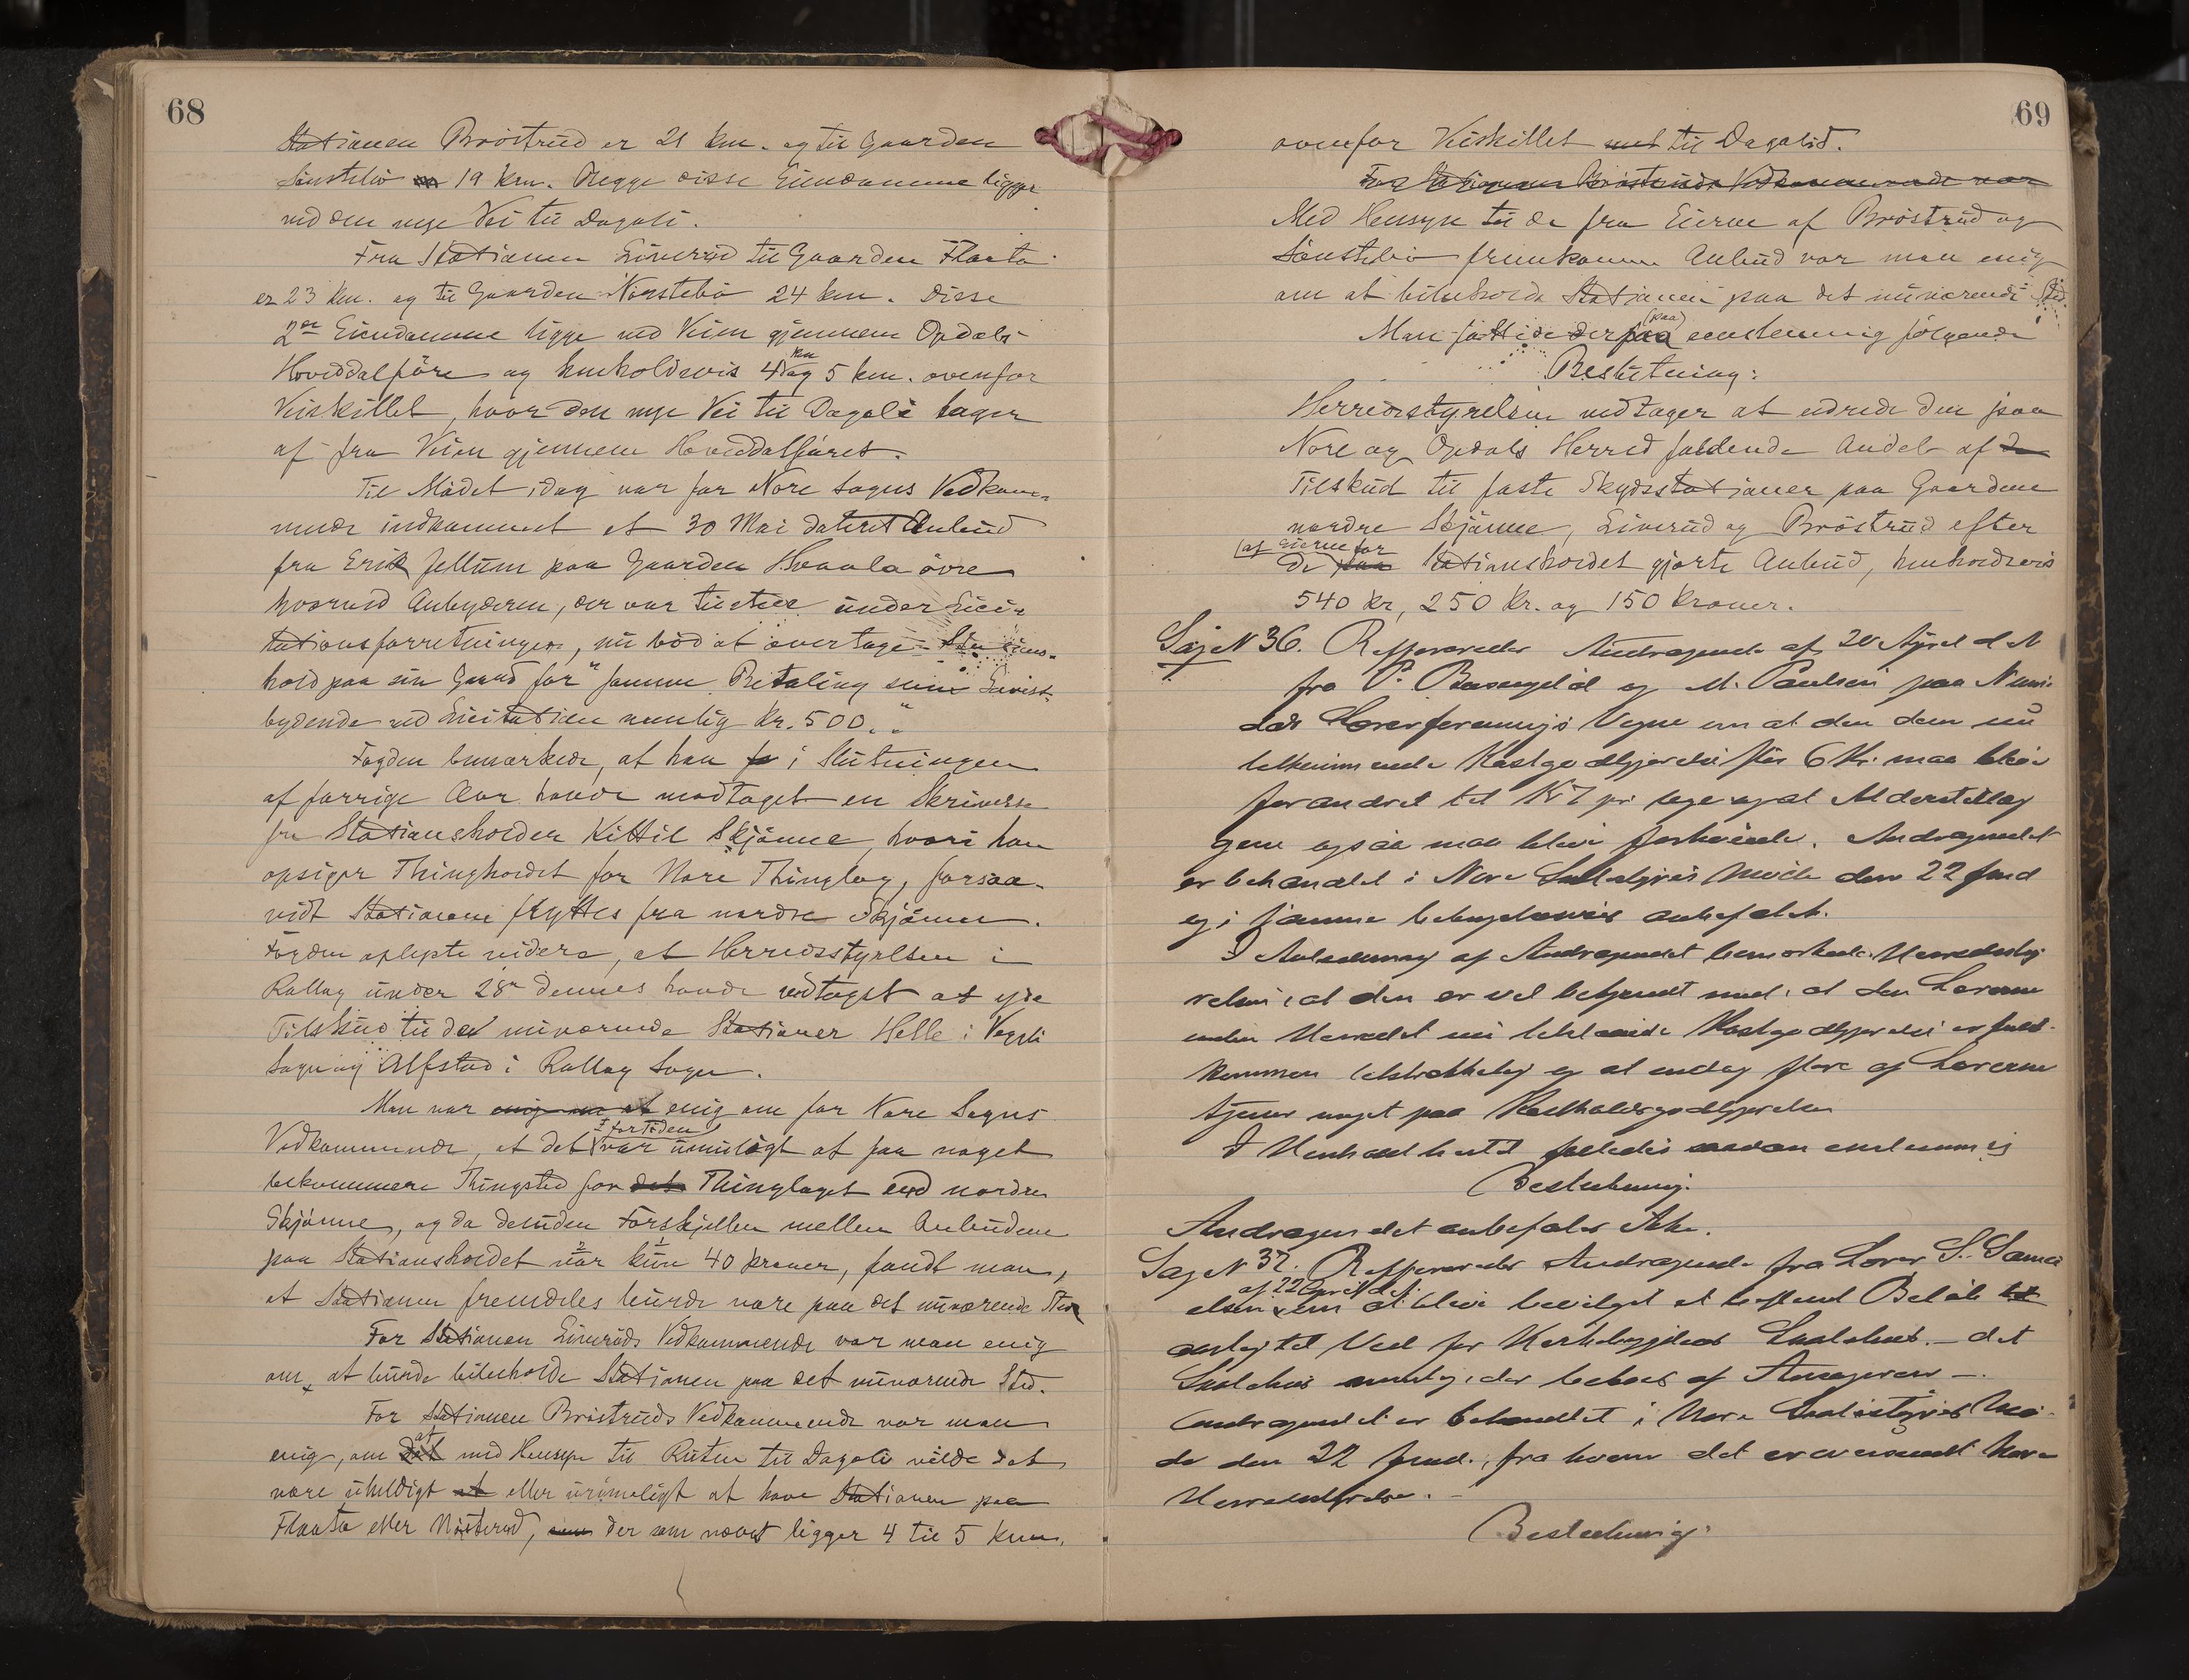 68
Stationen Bröstrud er 21 km. og til Gaarden
Sönstebö 19 km. Begge disse Eiendomme ligger
ved den nye Vei til Dagali.
Fra Stationen Liverud til Gaarden Flaata
er 23 km. og til Gaarden Nörstebö 24 km. Disse
2de Eiendomme ligge ved Veien gjennem Opdals
Hoveddalföre og henholdsvis 4 km og 5 km. ovenfor
Veiskillet, hvor den nye Vei til Dagali tager
af fra Veien gjennem Hoveddalföret.
Til Mödet idag var for Nore Sogns Vedkom-
mende indkommet et 30 Mai dateret Anbud
fra Erik Jellum paa Gaarden Hvaala övre
hvorved Anbyderen, der var tilstede under Lici-
tationsforretningen, nu böd at overtage Stations-
hold paa sin Gaard for "samme Betaling som Lavist-
bydende ved Licitation nemlig Kr. 500."
Fogden bemærkede, at han i Slutningen
af forrige Aar havde modtaget en Skrivelse
fra Stationsholder Kittil Skjönne, hvori han
opsiger Thingholdet for Nore Thinglag, forsaa-
vidt Stationen flyttes fra nordre Skjönne.
Fogden oplyste videre, at Herredsstyrelsen i
Rollag under 28de dennes havde vedtaget at yde
Tilskud til de nuværende Stationer Helle i Vegli
Sogn og Alfstad i Rollag Sogn.
Man var enig om at enig om for Nore Sogns
Vedkommende, at det for Tiden var umuligt at faa noget
bekvemmere Thingsted for det Thinglaget end nordre
Skjönne, og da desuden Forskjellen mellem Anbudene
paa Stationsholdet var kun 40 kroner, fandt man,
at Stationen fremdeles burde være paa det nuværende Sted
For Stationen Liveruds Vedkommende var man enig
om, at burde bibeholde Stationen paa det nuværende Sted.
For Stationen Bröstruds Vedkommende var man
enig, om at med Hensyn til Ruten til Dagali vilde det
være uheldigt at eller urimeligt at have Stationen paa
Flaata eller Nörstebö, der som nævnt ligger 4 til 5 km.
69
ovenfor Veiskillet til Dagalid.
For Stationen Bröstruds Vedkommende var
Med Hensyn til de fra Eierne af Bröstrud og
Sönstebö fremkomne Anbud var man enig
om at bibeholde Stationen paa det nuværende Sted.
Man fattede derpaa (paa) eenstemmig fölgende
Beslutning:
Herredsstyrelsen vedtager at udrede den paa
Nore og Opdals Herred faldende Andel af de
Tilskud til faste Skydsstationer paa Gaardene
nordre Skjönne, Liverud og Bröstrud efter
(af Eierne for
de paa Stationsholdet gjorte Anbud, henholdsvis
540 Kr, 250 Kr. og 150 Kroner.
Sag N 36. Refereredes Andragende af 20 April d. A
fra P. Bosengdal og M. Paulsen paa Numme-
dals Lærerforenings Vegne om at den dem nu
tilkommende Kostgodtgjörelse för 6 Kr. maa blive
forandret til Kr 7 pr. uge og at Alderstillæg
gene ogsaa maa blive forhöiede. Andragendet
er behandlet i Nore Skolestyres Möde den 22 Juni
og i samme betingelsesvis anbefalet.
I Anledning af Andragendet bemærkede Herredssty
relsen, at den er vel bekjendt med, at den Lærerne
inden Herredet nu tilstaaede Kostgodtgjörelse er fuld-
kommen tilstrækkelig og at endog flere af Lærerne
tjener noget paa Kostholdsgodtgjörelsen
I Henhold hertil fattedes saadan enstemmig
Beslutning.
Andragendet anbefales ikke.
Sag N 37. Refereredes Andragende fra Lærer S. Same-
af 22 April d. A.
elsen om at blive bevilget et bestemt Belöb til
aarlig til Ved for Kirkebygdens Skolehus – det
Skolehus nemlig, der beboes af Ansögeren –.
Andragendet er behandlet i Nore Skolestyres Mö-
de den 22 Juni, fra hvem det er oversendt Nore
Herredsstyrelse. –
Beslutning.